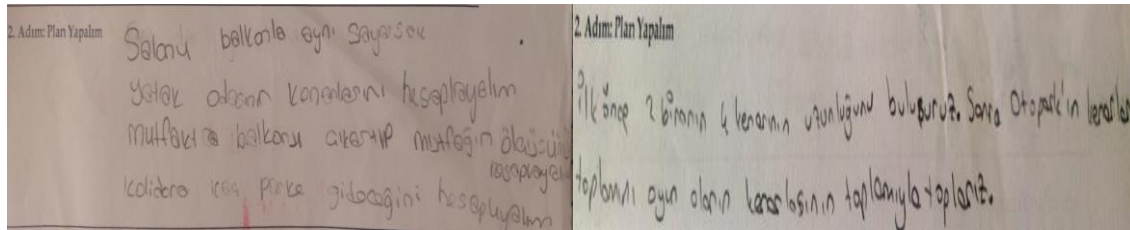 2. Adım: Plan Yapalım
Salonu balkonla aynı sayarsak
yatak odasının kenarlarını hesaplayalım
mutfakta balkonu çıkartıp mutfağın ölçüsünü
hesaplayalım
kolidora kaç parke gideceğini hesaplıyalım
2. Adım: Plan Yapalım
İlk önce 2 binanın 4 kenarının uzunluğunu buluşuruz. Sonra Otopark'ın kenarlar
toplamını oyun alanın kenarlarının toplamıyla toplarız.